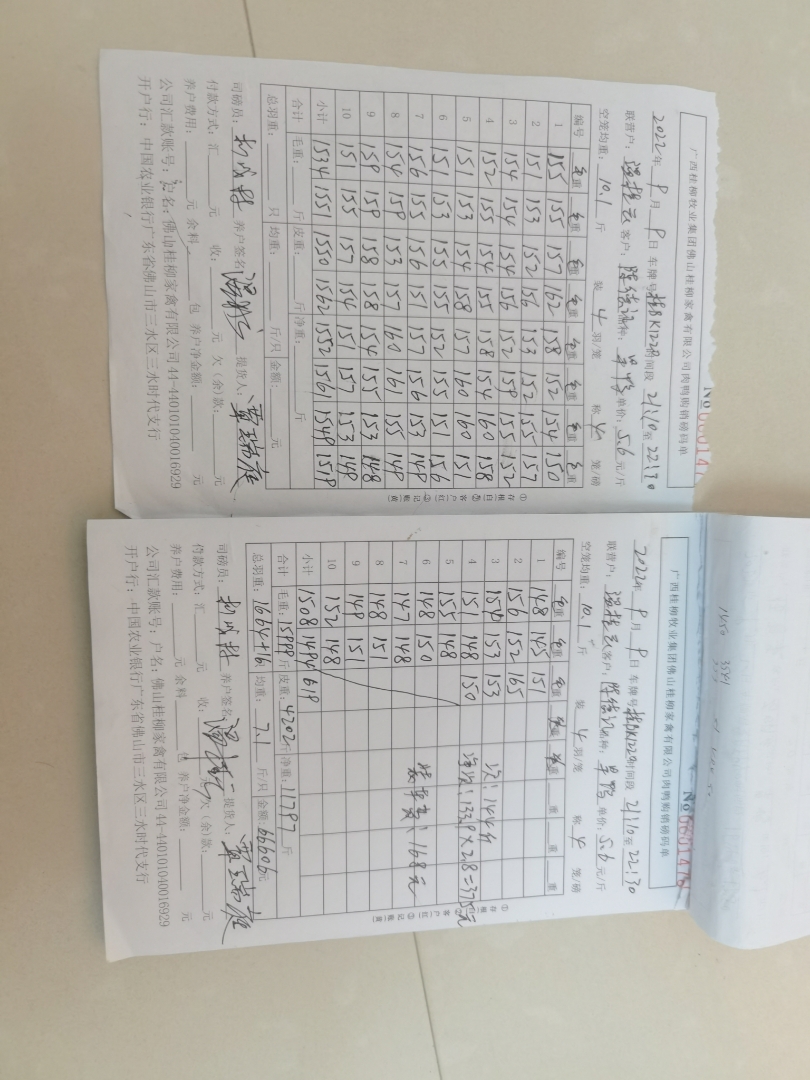 广西桂柳牧业集团佛山桂柳家禽有限公司肉鸭购销磅码单
2022年 9月 9日 车牌号 时间段 21:10至22:30
联营户: 客户: 品种: 单价: 5.6 元/斤
空笼均重: 10.1 斤 装 4 羽/笼 称 4 笼/磅
编号 毛重 毛重 毛重 毛重 毛重 毛重 毛重 毛重
1 155 155 157 162 158 152 154 150
2 151 153 152 156 153 152 155 157
3 154 154 154 156 152 159 155 152
4 152 155 154 155 158 154 160 158
5 151 153 154 158 157 160 160 151
6 151 153 155 155 152 155 151 156
7 156 155 156 151 157 156 153 149
8 154 159 153 157 160 161 155 149
9 159 159 158 158 154 155 153 148
10 151 155 157 154 151 157 153 149
小计 1534 1551 1550 1562 1552 1561 1549 1519
合计 毛重: 斤 皮重: 斤 净重: 斤
总羽重: 只 均重: 斤/只 金额: 元
司磅员: 养户签名: 提货人:
付款方式:汇 元 收: 元 欠(余)款: 元
养户费用: 元 余料 包 养户净金额: 元
公司汇款账号:户名:佛山桂柳家禽有限公司 44-440101040016929
开户行:中国农业银行广东省佛山市三水区三水时代支行
①存根(白) ②客户(红) ③记账(黄)
广西桂柳牧业集团佛山桂柳家禽有限公司肉鸭购销磅码单
2022年 9月 9日 车牌号 时间段 21:10至22:30
联营户: 客户: 品种: 单价: 5.6 元/斤
空笼均重: 10.1 斤 装 4 羽/笼 称 4 笼/磅
编号 毛重 毛重 毛重 毛重 毛重 重 重 重
1 148 145 151
2 156 152 165
3 154 153 153
4 151 148 150
5 155 148
6 148 150
7 147 148
8 148 151
9 149 151
10 152 148
小计 1508 1494 619
合计 毛重: 15999 斤 皮重: 4202 斤 净重: 11797 斤
总羽重: 1664+16 均重: 7.1 斤/只 金额: 66606元
司磅员: 养户签名: 提货人:
付款方式:汇 元 收: 元 欠(余)款: 元
养户费用: 元 余料 包 养户净金额: 元
公司汇款账号:户名:佛山桂柳家禽有限公司 44-440101040016929
开户行:中国农业银行广东省佛山市三水区三水时代支行
①存根(白) ②客户(红) ③记账(黄)